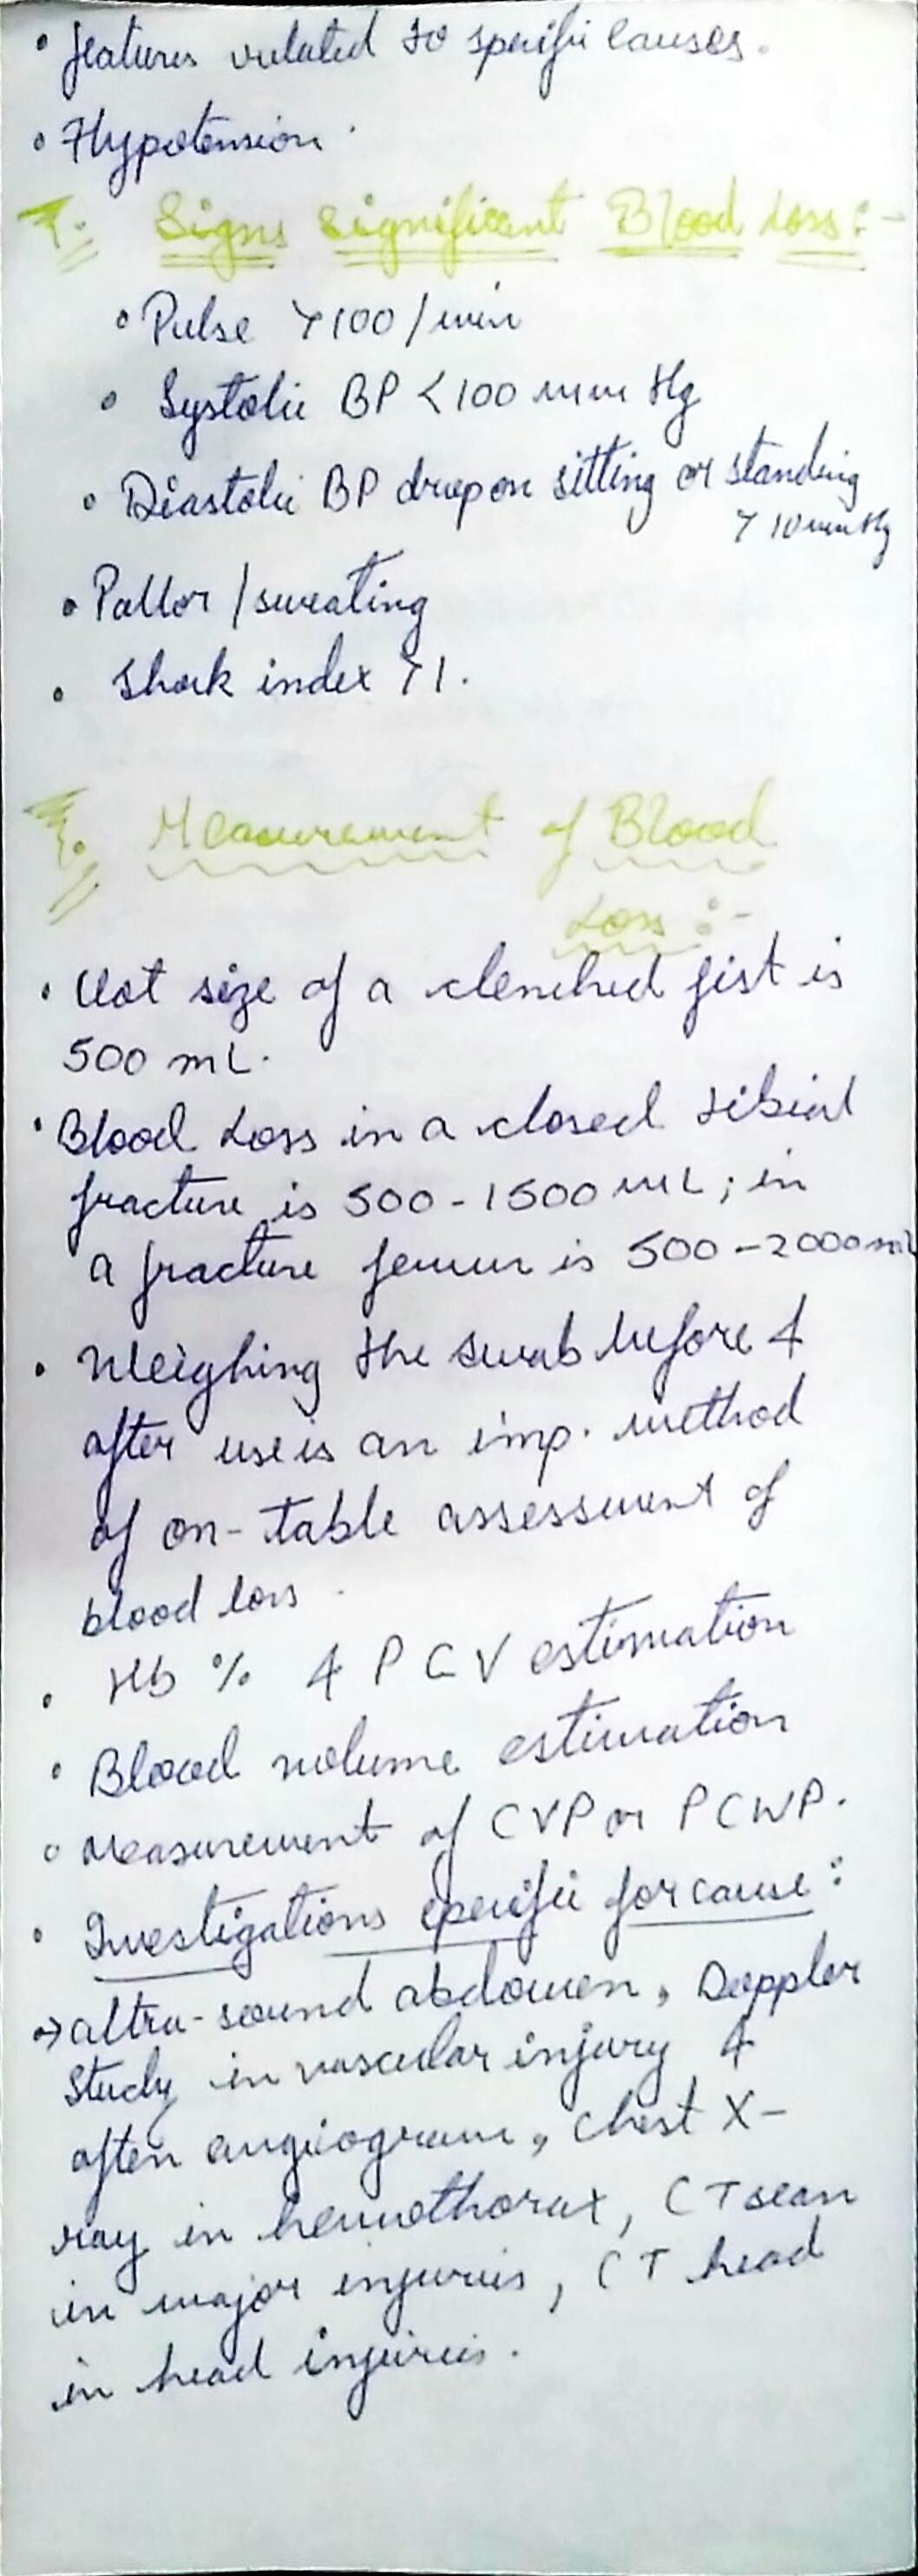 • features related to specific causes.
• Hypotension.
Signs significant Blood Loss:-
• Pulse >100/min
• Systolic BP <100 mm Hg
• Diastolic BP drop on sitting or standing
>10mmHg
• Pallor / sweating
• Shock index >1.
Measurement of Blood
Loss:-
• Clot size of a clenched fist is
500 mL.
• Blood Loss in a closed tibial
fracture is 500-1500 mL; in
a fracture femur is 500-2000mL
• Weighing the swab before &
after use is an imp. method
of on-table assessment of
blood loss.
• Hb % & PCV estimation
• Blood volume estimation
• Measurement of CVP or PCWP.
• Investigations specific for cause:
→ ultra-sound abdomen, Doppler
study in vascular injury &
often angiogram, chest X-
ray in hemothorax, CT scan
in major injuries, CT head
in head injuries.